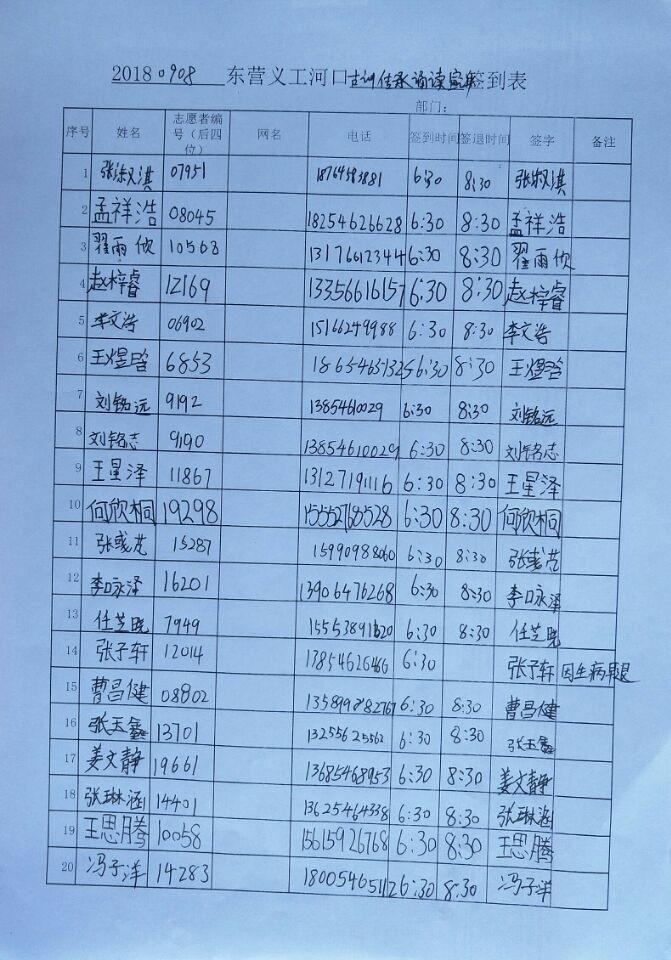 20180908 东营义工河口古训传承诵读宣讲签到表
部门：
序号 姓名 志愿者编号（后四位） 网名 电话 签到时间 签退时间 签字 备注
1 张淑淇 07951 18764583881 6:30 8:30 张淑淇
2 孟祥浩 08045 18254626628 6:30 8:30 孟祥浩
3 翟雨欣 10568 13176612344 6:30 8:30 翟雨欣
4 赵梓睿 12169 13356616157 6:30 8:30 赵梓睿
5 李文浩 06902 15166249988 6:30 8:30 李文浩
6 王煜晗 6853 6:30 8:30 王煜晗
7 刘铭远 9192 13854610029 6:30 8:30 刘铭远
8 刘铭志 9190 13854610029 6:30 8:30 刘铭志
9 王星泽 11867 13127191116 6:30 8:30 王星泽
10 何欣桐 19298 15552768528 6:30 8:30 何欣桐
11 15287 15990988060 6:30 8:30
12 李咏泽 16201 13906476268 6:30 8:30 李咏泽
13 任芝晓 7949 15553891620 6:30 8:30 任芝晓
14 张子轩 12014 13854626466 6:30 张子轩 因生病早退
15 曹昌健 08802 6:30 8:30 曹昌健
16 张玉鑫 13701 13255625562 6:30 8:30 张玉鑫
17 姜文静 19661 13685468953 6:30 8:30 姜文静
18 张琳涵 14401 13625464338 6:30 8:30 张琳涵
19 王思腾 10058 15615926768 6:30 8:30 王思腾
20 冯子洋 14283 18005465112 6:30 8:30 冯子洋